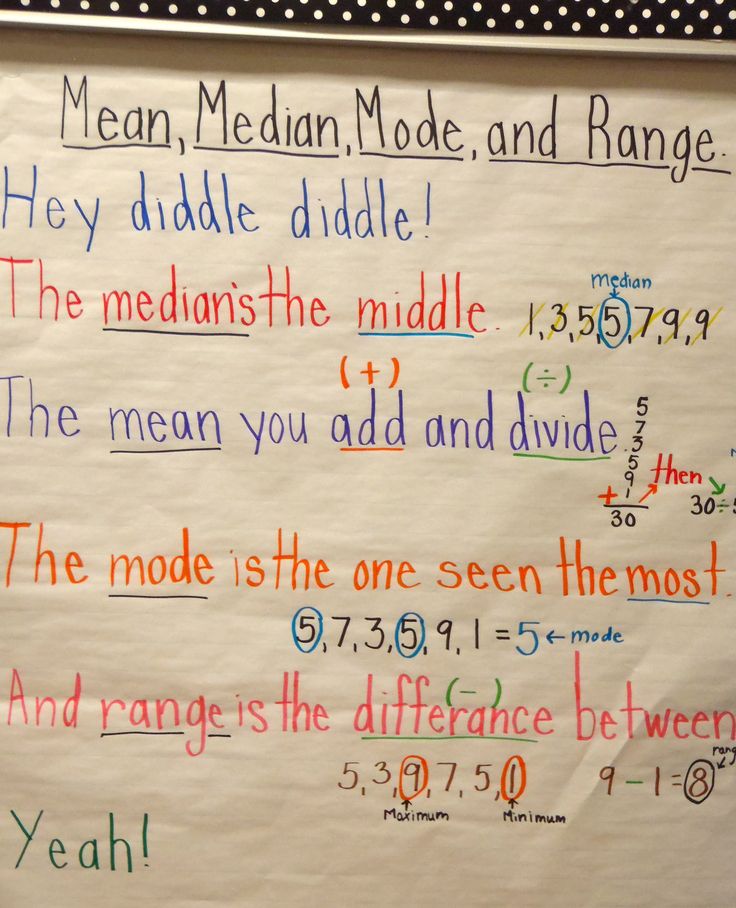 Mean, Median, Mode, and Range.
Hey diddle diddle!
median
The median's the middle. 1, 3, 5, 5, 7, 9, 9
(+) (÷)
The mean you add and divide.
5
7
3
5
9
+ 1 then
30 30÷
The mode is the one seen the most.
5, 7, 3, 5, 9, 1 = 5 ← mode
(-)
And range is the differance between
5, 3, 9, 7, 5, 1 9 - 1 = 8
Maximum Minimum
Yeah!